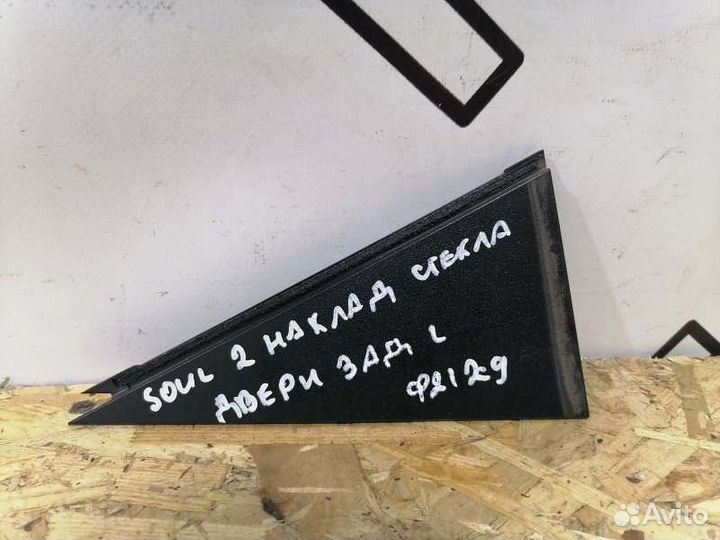 SOUL 2 НАКЛАД СТЕКЛА
ДВЕРИ ЗАД L
Ф2129
Avito